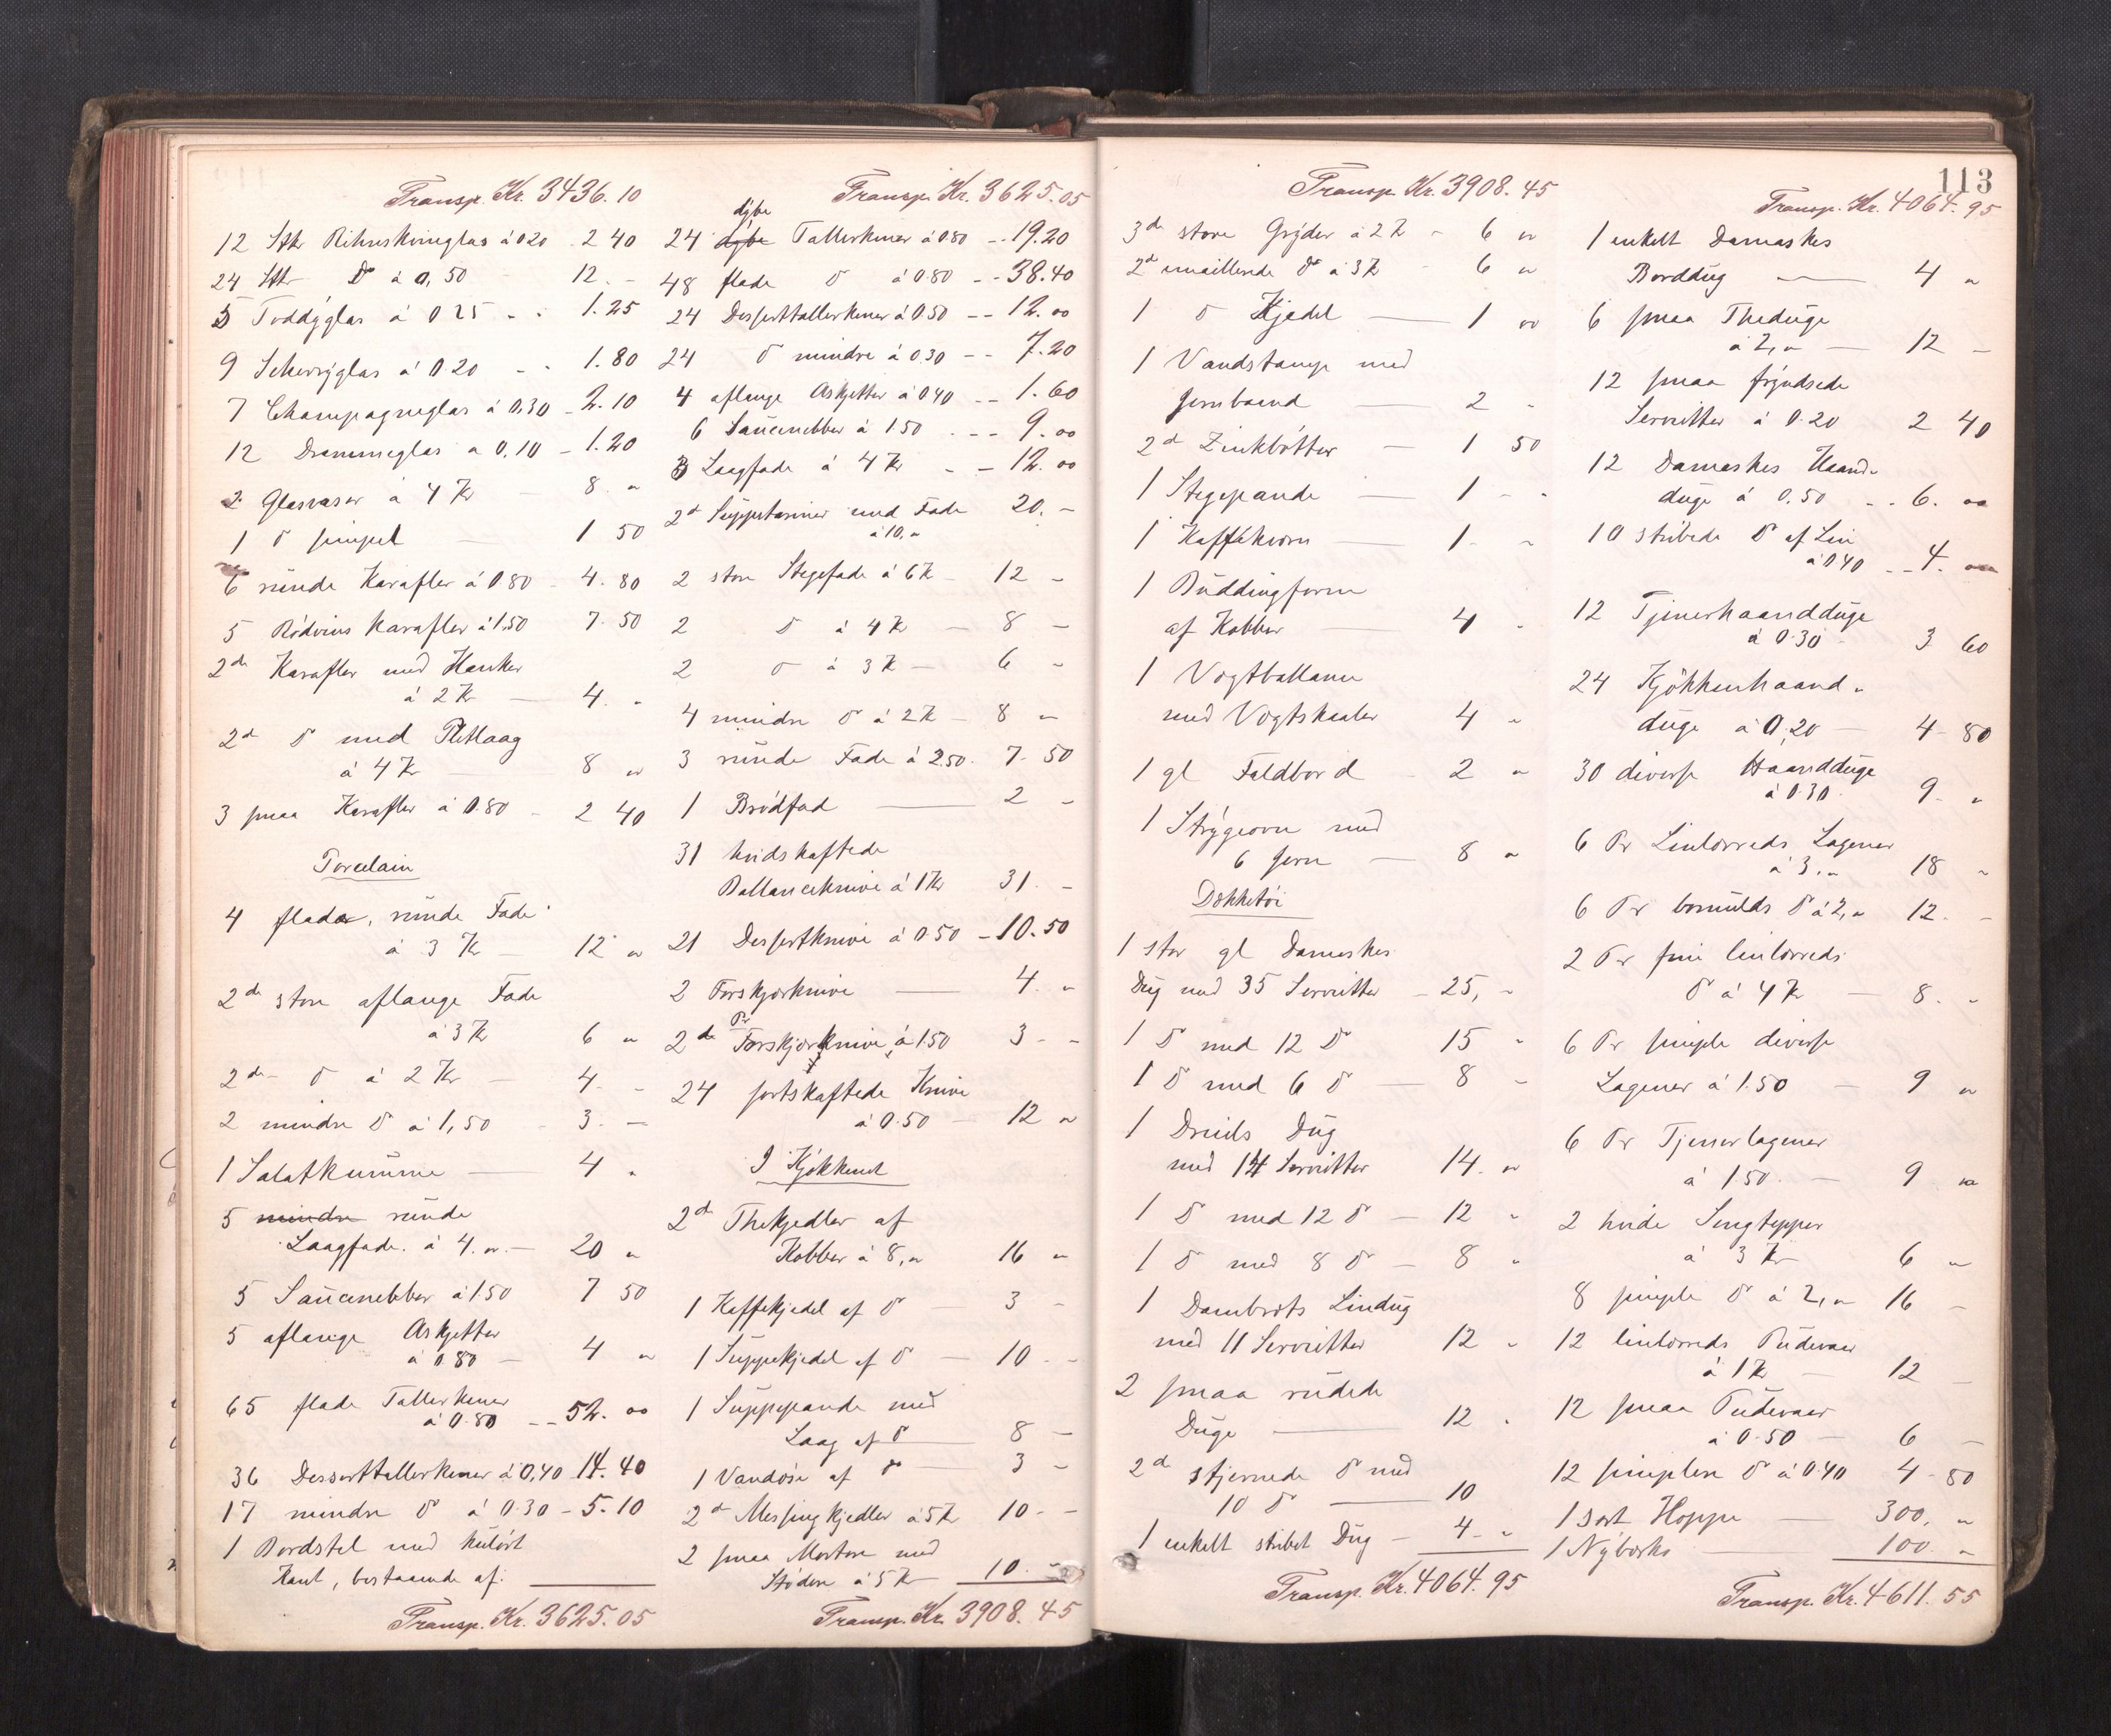 Transp. Kr. 3436.10
12 Stk Rihnskvinglas á 020 - 2 40
24 Stk D° á 0,50 - 12. -
5 Toddyglas á 0 25 - - 1.25
9 Scherryglas á 0.20 - - 1.80
7 Champagneglas á 0,30 - 2.10
12 Drammeglas a 0,10 - 1.20
2 Glasvaser á 4 Kr - 8 "
1 D° simpel - 1 50
6 runde Karafler á 0.80 - 4. 80
5 Rödvins Karafler á 1.50 7. 50
2de Karafler med Hanker
á 2 Kr - 4. "
2d D° med Pletlaag
á 4 Kr - 8 "
3 smaa Karafler á 0.80 - 2 40
Porcelain
4 flade, runde Fade
á 3 Kr - 12 "
2de store aflange Fade
á 3 Kr 6 "
2de - D° á 2 Kr - 4. -
2 mindre D° á 1,50 - 3. -
1 Salatkumme - 4 "
5 mindre runde
Laagfade. á 4. " - 20 "
5 Saucenebber á 1.50 7 50
5 aflange Askjetter
á 0 80 - 4 "
65 flade Tallerkener
á 0.80 - - 52. 00
36 Desserttallerkener á 0,40 14. 40
17 mindre D° á 0.30 - 5.10
1 Bordstel med kulört
Kant, bestaaende af:
Transp. Kr. 3625.05
Transp. Kr. 3625.05
dybe
24 dybe Tallerkener á 0.80 - - 19.20
48 flade D° á 0.80 - - 38.40
24 Desserttallerkener á 0.50 - - 12. 00
24 D° mindre á 0.30 - - 7.20
4 aflange Askjetter á 0.40 - - 1. 60
6 Saucenebber á 1.50 - - - 9. 00
3 Laagfade á 4 Kr - - 12. 00
2d Suppeterriner med Fade 20. -
á 10, "
2 store Stegefade á 6 Kr - 12 -
2 D° á 4 Kr - 8 -
2 D° á 3 Kr - 6 -
4 mindre D° á 2 Kr - 8 -
3 runde Fade á 2.50 - 7. 50
1 Brödfad - 2 -
31 hvidskaftede
Ballanceknive á 1 Kr 31. -
21 Dessertknive á 0.50 - 10.50
2 Forskjærknive - 4. "
Pr
2de Forskjærknive, á 1.50 3 - -
24 sortskaftede Knive
á 0.50 - 12 "
I Kjökkenet
2d Thekjedler af
Kobber á 8, " 16 "
1 Kaffekjedel af D° 3 -
1 Suppekjedel af D° - 10 - -
1 Suppepande med
Laag af D° - 8 -
1 Vandöse af D° - 3 -
2d Messingkjedler á 5 Kr 10 - -
2 smaa Mortere med
Stödere á 5 Kr - 10. -
Transp. Kr. 3908. 45
Transp. Kr. 3908. 45
3de store Gryder á 2 Kr - 6 "
2d emaillerede D° á 3 Kr - 6 "
1 D° Kjedel - 1 "
1 Vandstamp med
Jernbaand - 2 -
2d Zinkbötter - 1 50
1 Stegepande - 1 - -
1 Kaffekværn - 1. "
1 Buddingform
af Kobber - 4 -
1 Vogtballance
med Vogtskaaler 4 "
1 gl Faldbord - 2 "
1 Strygeovn med
6 Jern - 8 "
Dækketöi
1 stor gl Damaskes
Dug med 35 Servietter - 25, -
1 D° med 12 D° 15 "
1 D° med 6 D° - 8 -
1 Dreiels Dug
med 14 Servietter 14. "
1 D° med 12 D° - 12 "
1 D° med 8 D° - 8 "
1 Dambræts Lindug
med 11 Servietter 12 "
2 smaa rudede
Duge - 12 "
2d stjernede D° med
10 D° - 10
1 enkelt stribet Dug - 4 - "
Transp. Kr. 4064. 95
113
Transp. Kr. 4064. 95
1 enkelt Damaskes
Borddug - 4 "
6 smaa Theduge
á 2, " - 12 -
12 smaa fryndsede
Servietter á 0.20 2 40
12 Damaskes Haand-
duge á 0.50 - - 6. 00
10 stribede D° af Lin
á 0.40 - - 4. 00
12 Tjenerhaandduge
á 0.30 - 3 60
24 Kjökkenhaand-
duge á 0,20 - 4 - 80
30 diverse Haandduge
á 0.30 - 9. "
6 Pr Linlærreds Lagener
á 3. " 18 "
6 Pr bomulds D° á 2, " 12. -
2 Pr fine linlærreds
D° á 4 Kr - 8. "
6 Pr simple diverse
Lagener á 1.50 - 9 "
6 Pr Tjenerlagener
á 1.50. - 9 "
2 hvide Sengtepper
á 3 Kr 6 "
8 simple D° á 2, " 16 -
12 linlærreds Pudevaer
á 1 Kr - 12 -
12 smaa Pudevaer
á 0.50 - 6 -
12 simplere D° á 0.40 4 - 80
1 sort Hoppe - 300, "
1 Nybærko 100. "
Transp. Kr. 4611. 55